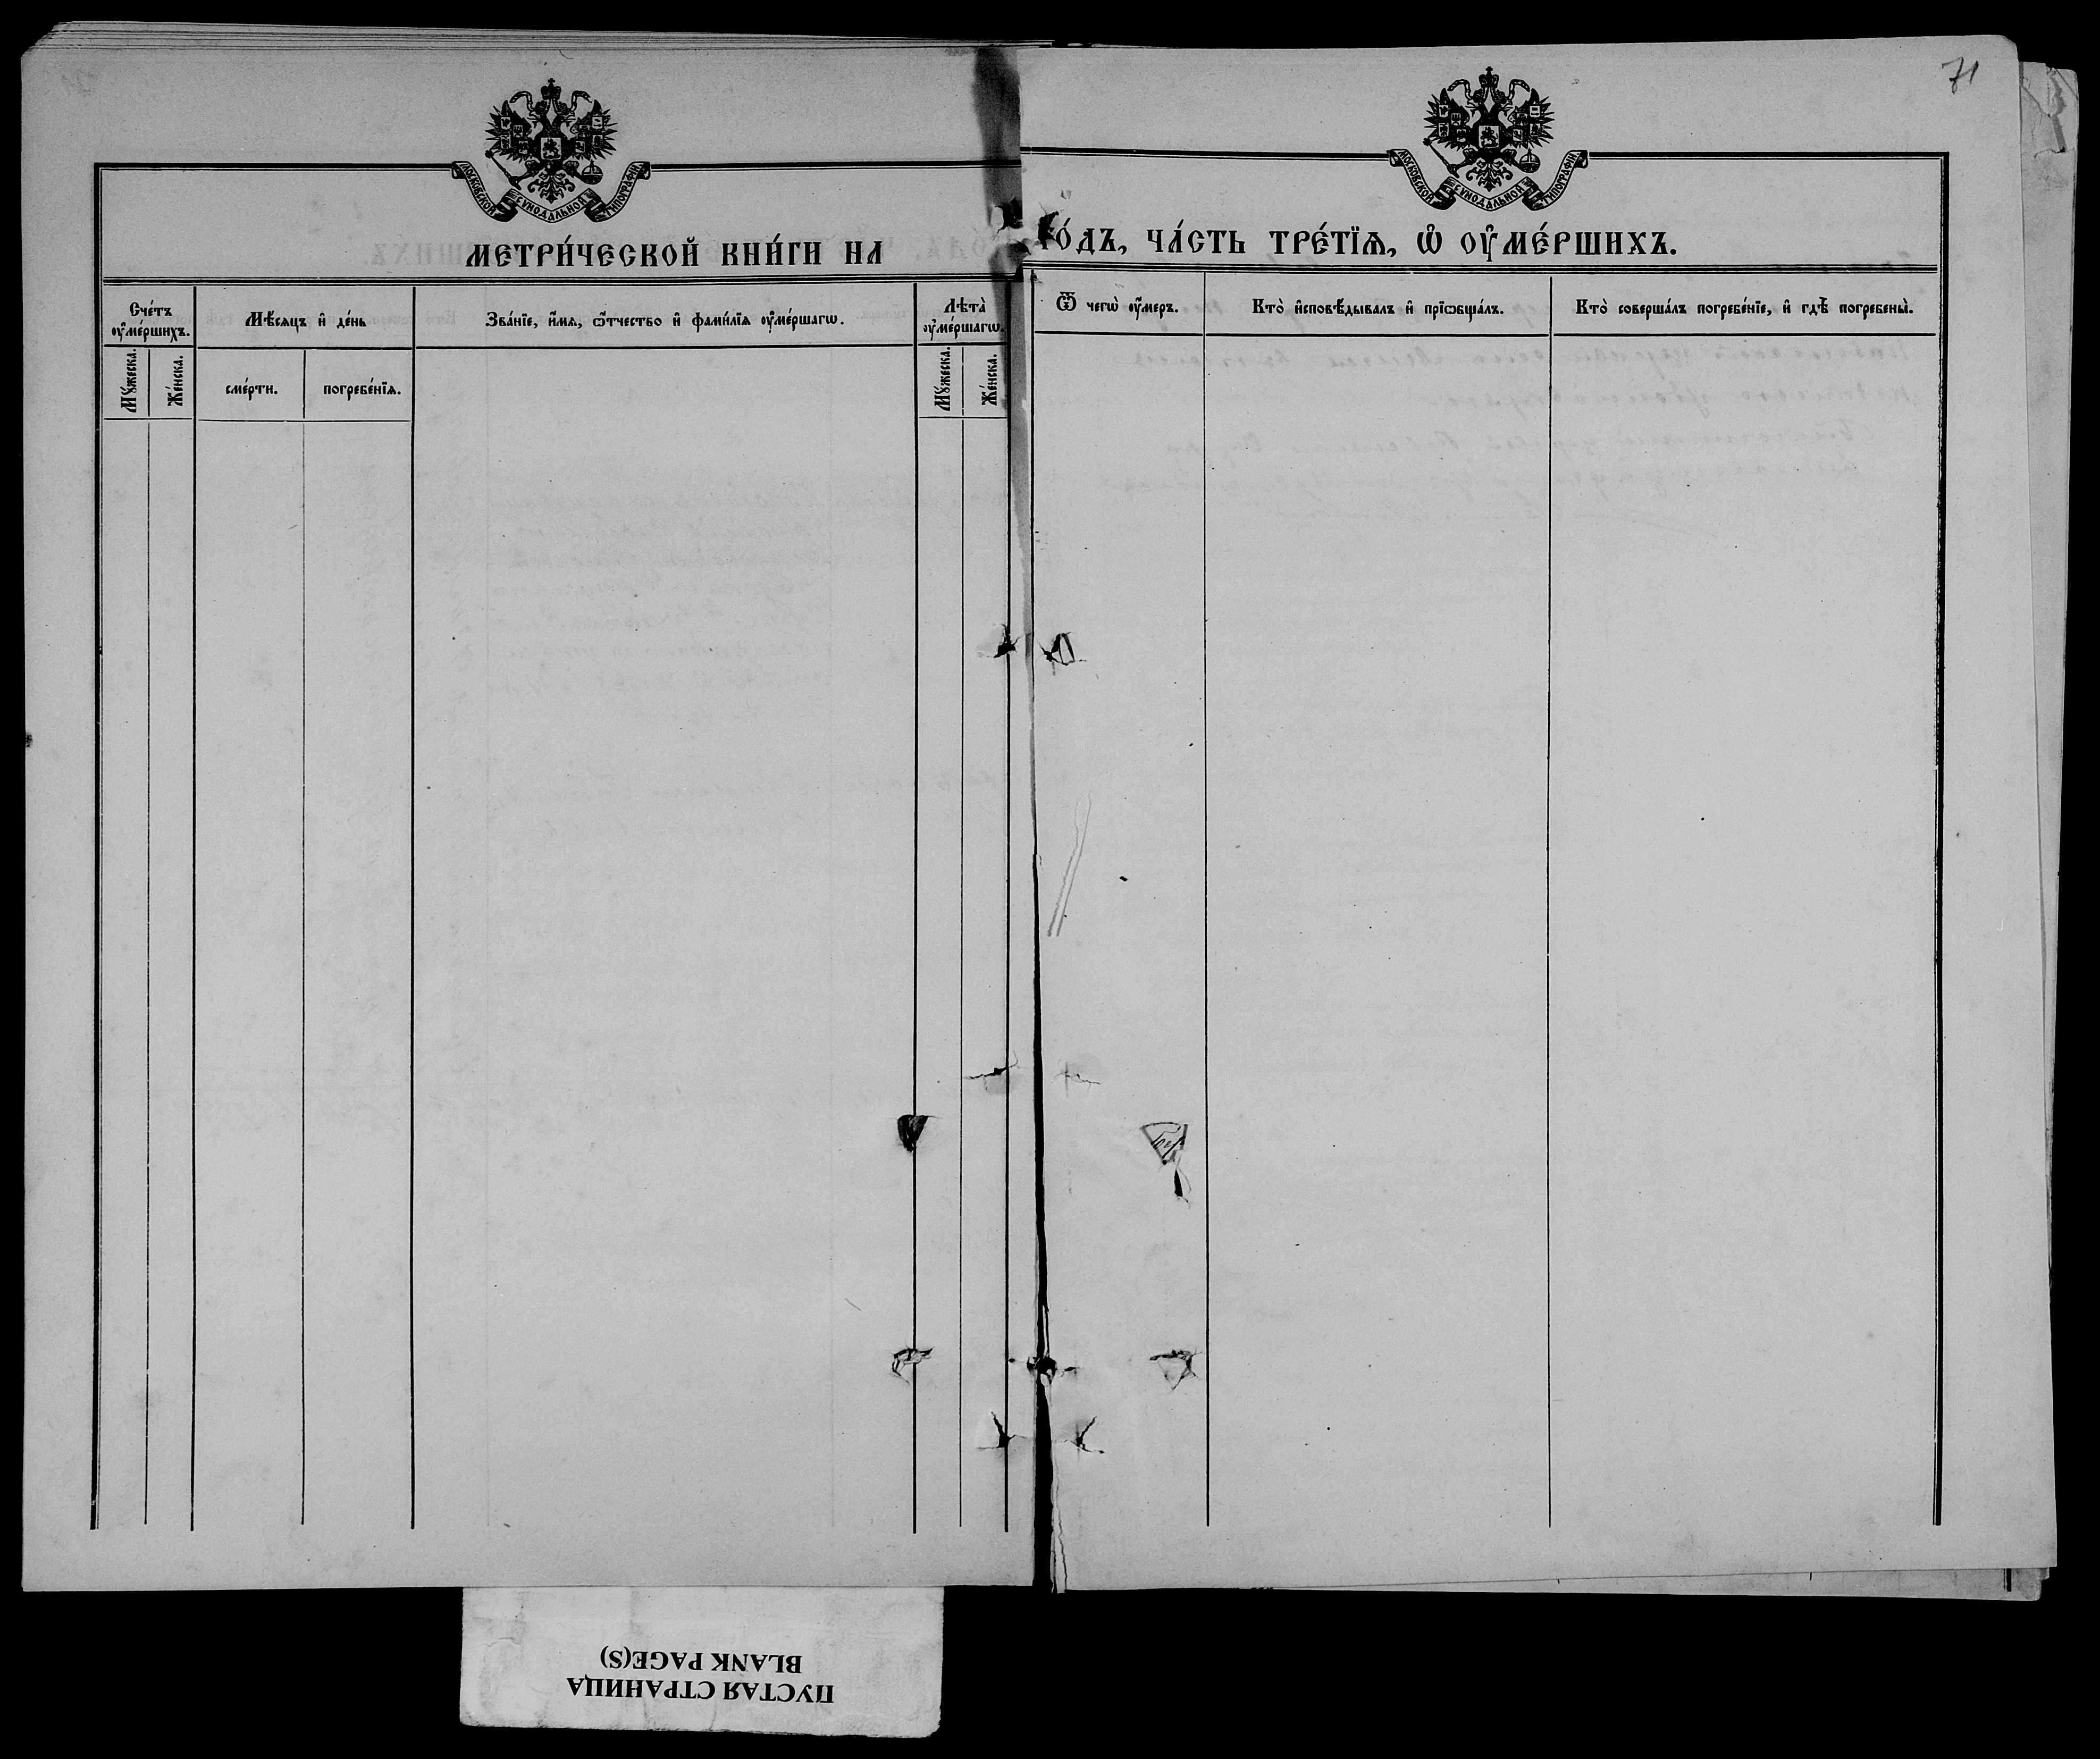 71
МОСКОВСКОЙ СѴНОДАЛЬНОЙ ТИПОГРАФІИ
МОСКОВСКОЙ СѴНОДАЛЬНОЙ ТИПОГРАФІИ
МЕТРИ́ЧЕСКОЙ КНИ́ГИ НА ГО́ДЪ, ЧА́СТЬ ТРЕ́ТЇѦ, Ѡ҆ ОУ҆МЕ́РШИХЪ.
Сче́тъ
оу҆ме́ршихъ.
Мѣ́сяцъ и҆ де́нь
Зва́нїе, и҆́мѧ, ѻ҆́тчество и҆ фами́лїѧ оу҆ме́ршагѡ.
Лѣта̀
оу҆ме́ршагѡ.
Ѿ чегѡ̀ оу҆́меръ.
Кто̀ и҆сповѣ́дывалъ и҆ прїѡбща́лъ.
Кто̀ соверша́лъ погребе́нїе, и҆ гдѣ̀ погребены̀.
Мꙋ́жеска.
Же́нска.
сме́рти.
погребе́нїѧ.
Мꙋ́жеска.
Же́нска.
ПУСТАЯ СТРАНИЦА
BLANK PAGE(S)